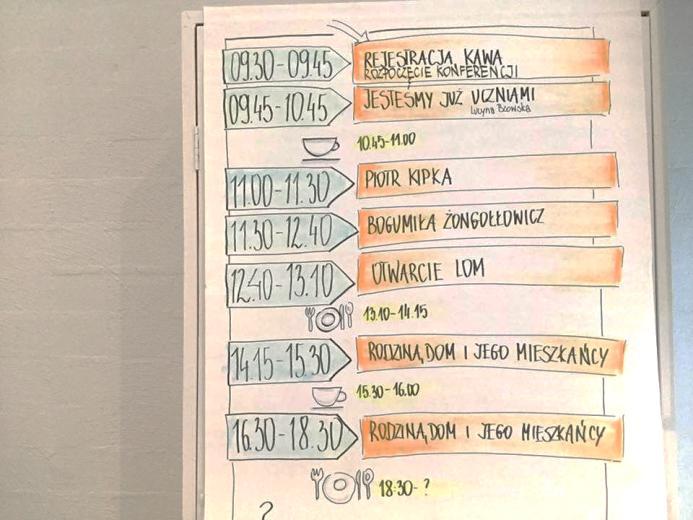 09.30-09.45 REJESTRACJA, KAWA
ROZPOCZĘCIE KONFERENCJI
09.45-10.45 JESTEŚMY JUŻ UCZNIAMI
10.45-11.00
11.00-11.30 PIOTR KIPKA
11.30-12.40 BOGUMIŁA ŻONGOŁŁOWICZ
12.40-13.10 OTWARCIE LDM
13.10-14.15
14.15-15.30 RODZINA, DOM I JEGO MIESZKAŃCY
15.30-16.00
16.30-18.30 RODZINA, DOM I JEGO MIESZKAŃCY
18:30-?
?